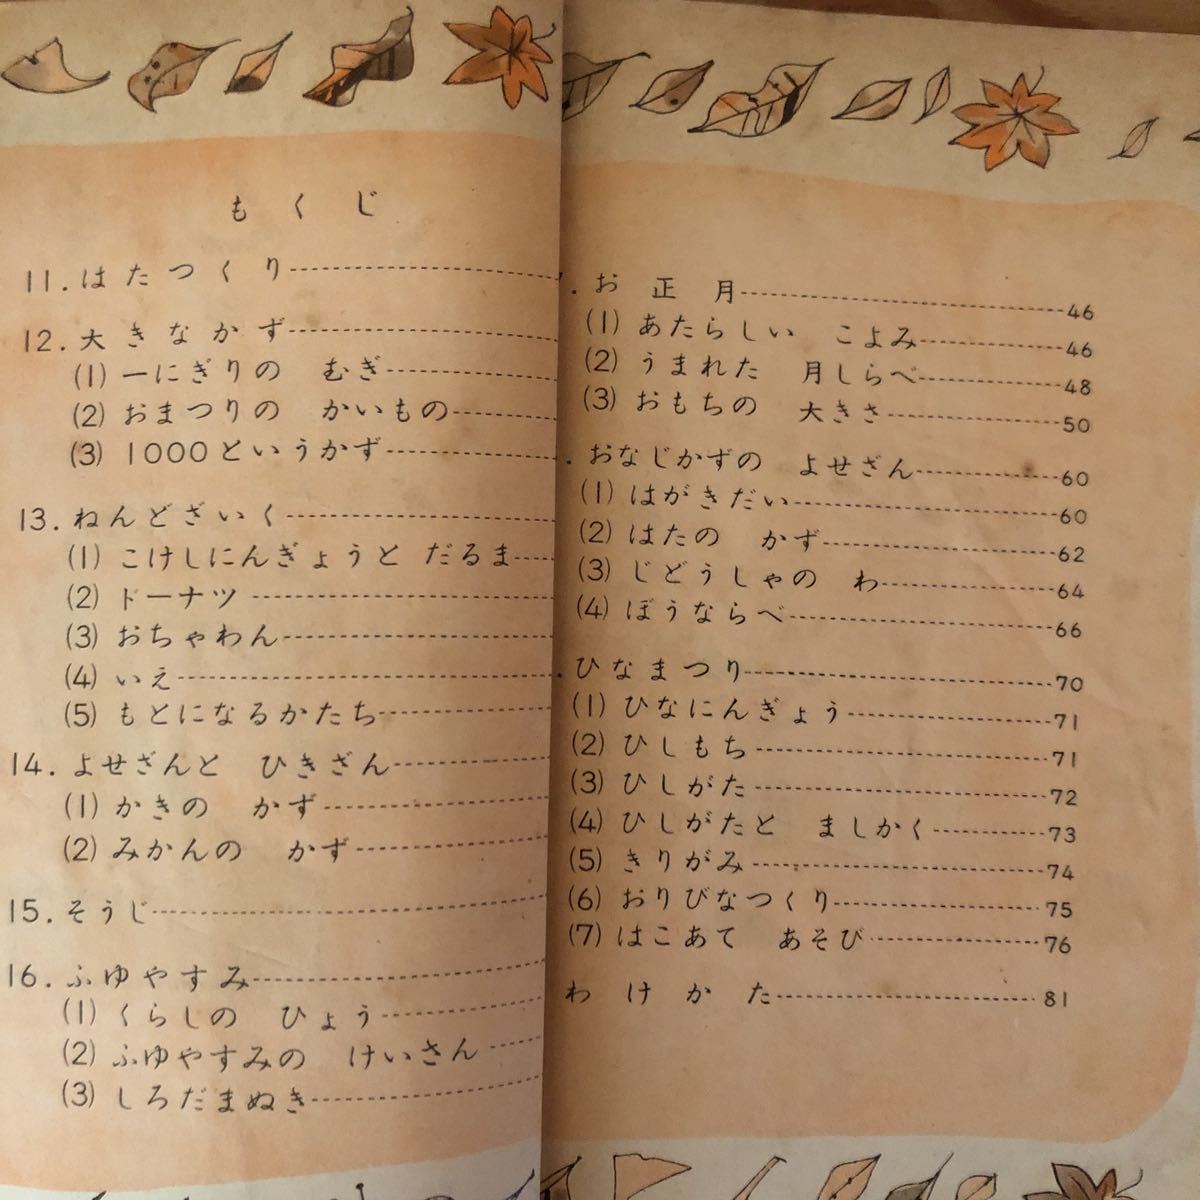 もくじ
11.はたつくり
12.大きなかず
(1) 一にぎりの むぎ
(2) おまつりの かいもの
(3) 1000というかず
13.ねんどざいく
(1) こけしにんぎょうと だるま
(2) ドーナツ
(3) おちゃわん
(4) いえ
(5) もとになるかたち
14.よせざんと ひきざん
(1) かきの かず
(2) みかんの かず
15.そうじ
16.ふゆやすみ
(1) くらしの ひょう
(2) ふゆやすみの けいさん
(3) しろだまぬき
.お正月 46
(1) あたらしい こよみ 46
(2) うまれた 月しらべ 48
(3) おもちの 大きさ 50
.おなじかずの よせざん 60
(1) はがきだい 60
(2) はたの かず 62
(3) じどうしゃの わ 64
(4) ぼうならべ 66
.ひなまつり 70
(1) ひなにんぎょう 71
(2) ひしもち 71
(3) ひしがた 72
(4) ひしがたと ましかく 73
(5) きりがみ 74
(6) おりびなつくり 75
(7) はこあて あそび 76
わけかた 81